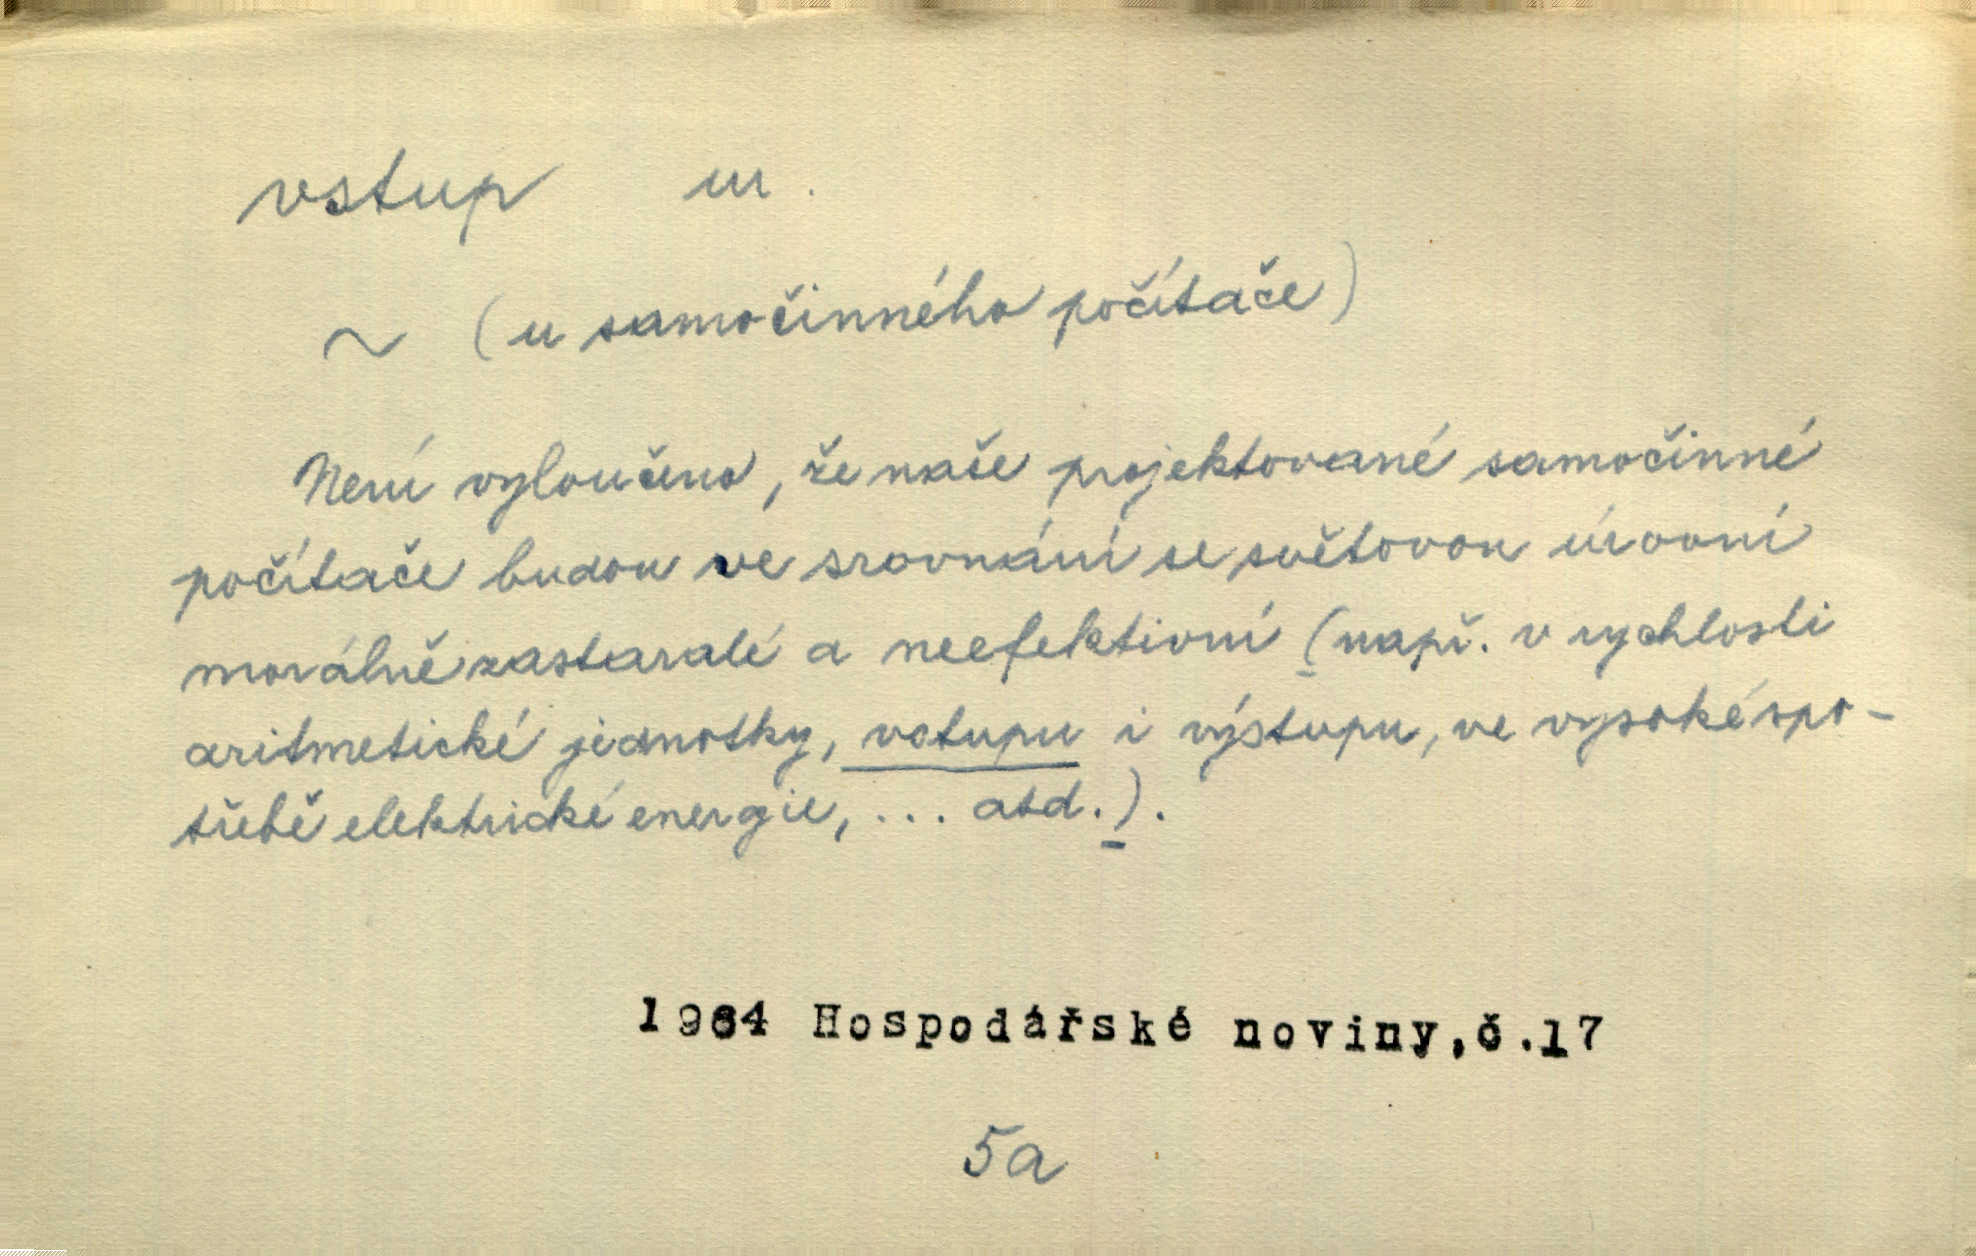 vstup m.
~ (u samočinného počítače)
Není vyloučeno, že naše projektované samočinné
počítače budou ve srovnání se světovou úrovní
morálně zastaralé a neefektivní (např. v rychlosti
aritmetické jednotky, vstupu i výstupu, ve vysoké spo-
třebě elektrické energie, ... atd.).
1964 Hospodářské noviny, č.17
5a